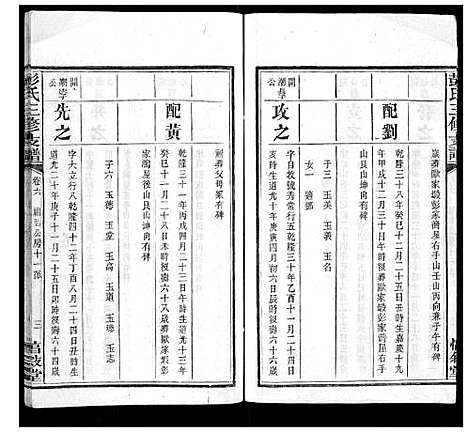 彭氏三修支譜
開潮字公
攻之
字日牧號秀常行五乾隆三十年乙酉十一月十四
亥時生道光十年庚寅四月初六日辰時歿壽六十六歲
山艮山坤向有碑
子三 玉英 玉義 玉名
女一 適鄭
配劉
乾隆三十八年癸巳十二月二十五日巳時生嘉慶十九
年甲戌十二月三十日
歲葬歐家塅彭家屋後右手山壬山丙向兼子午有碑
開潮字公
先之
字六立行八乾隆四十二年丁酉八月二十四日丑時生
道光二十年庚子十一月二十五日卯時歿壽六十四歲
子六 玉德 玉堂 玉高 玉道 玉璋 玉志
配黃
乾隆五十一年丙戌四月二十三日午時生道光十三年
癸巳十二月十八日未時歿壽六十八歲葬歐家塅彭
家灣屋後山艮山坤向有碑
祔葬父母冢有碑
彭氏三修支譜
卷六
三